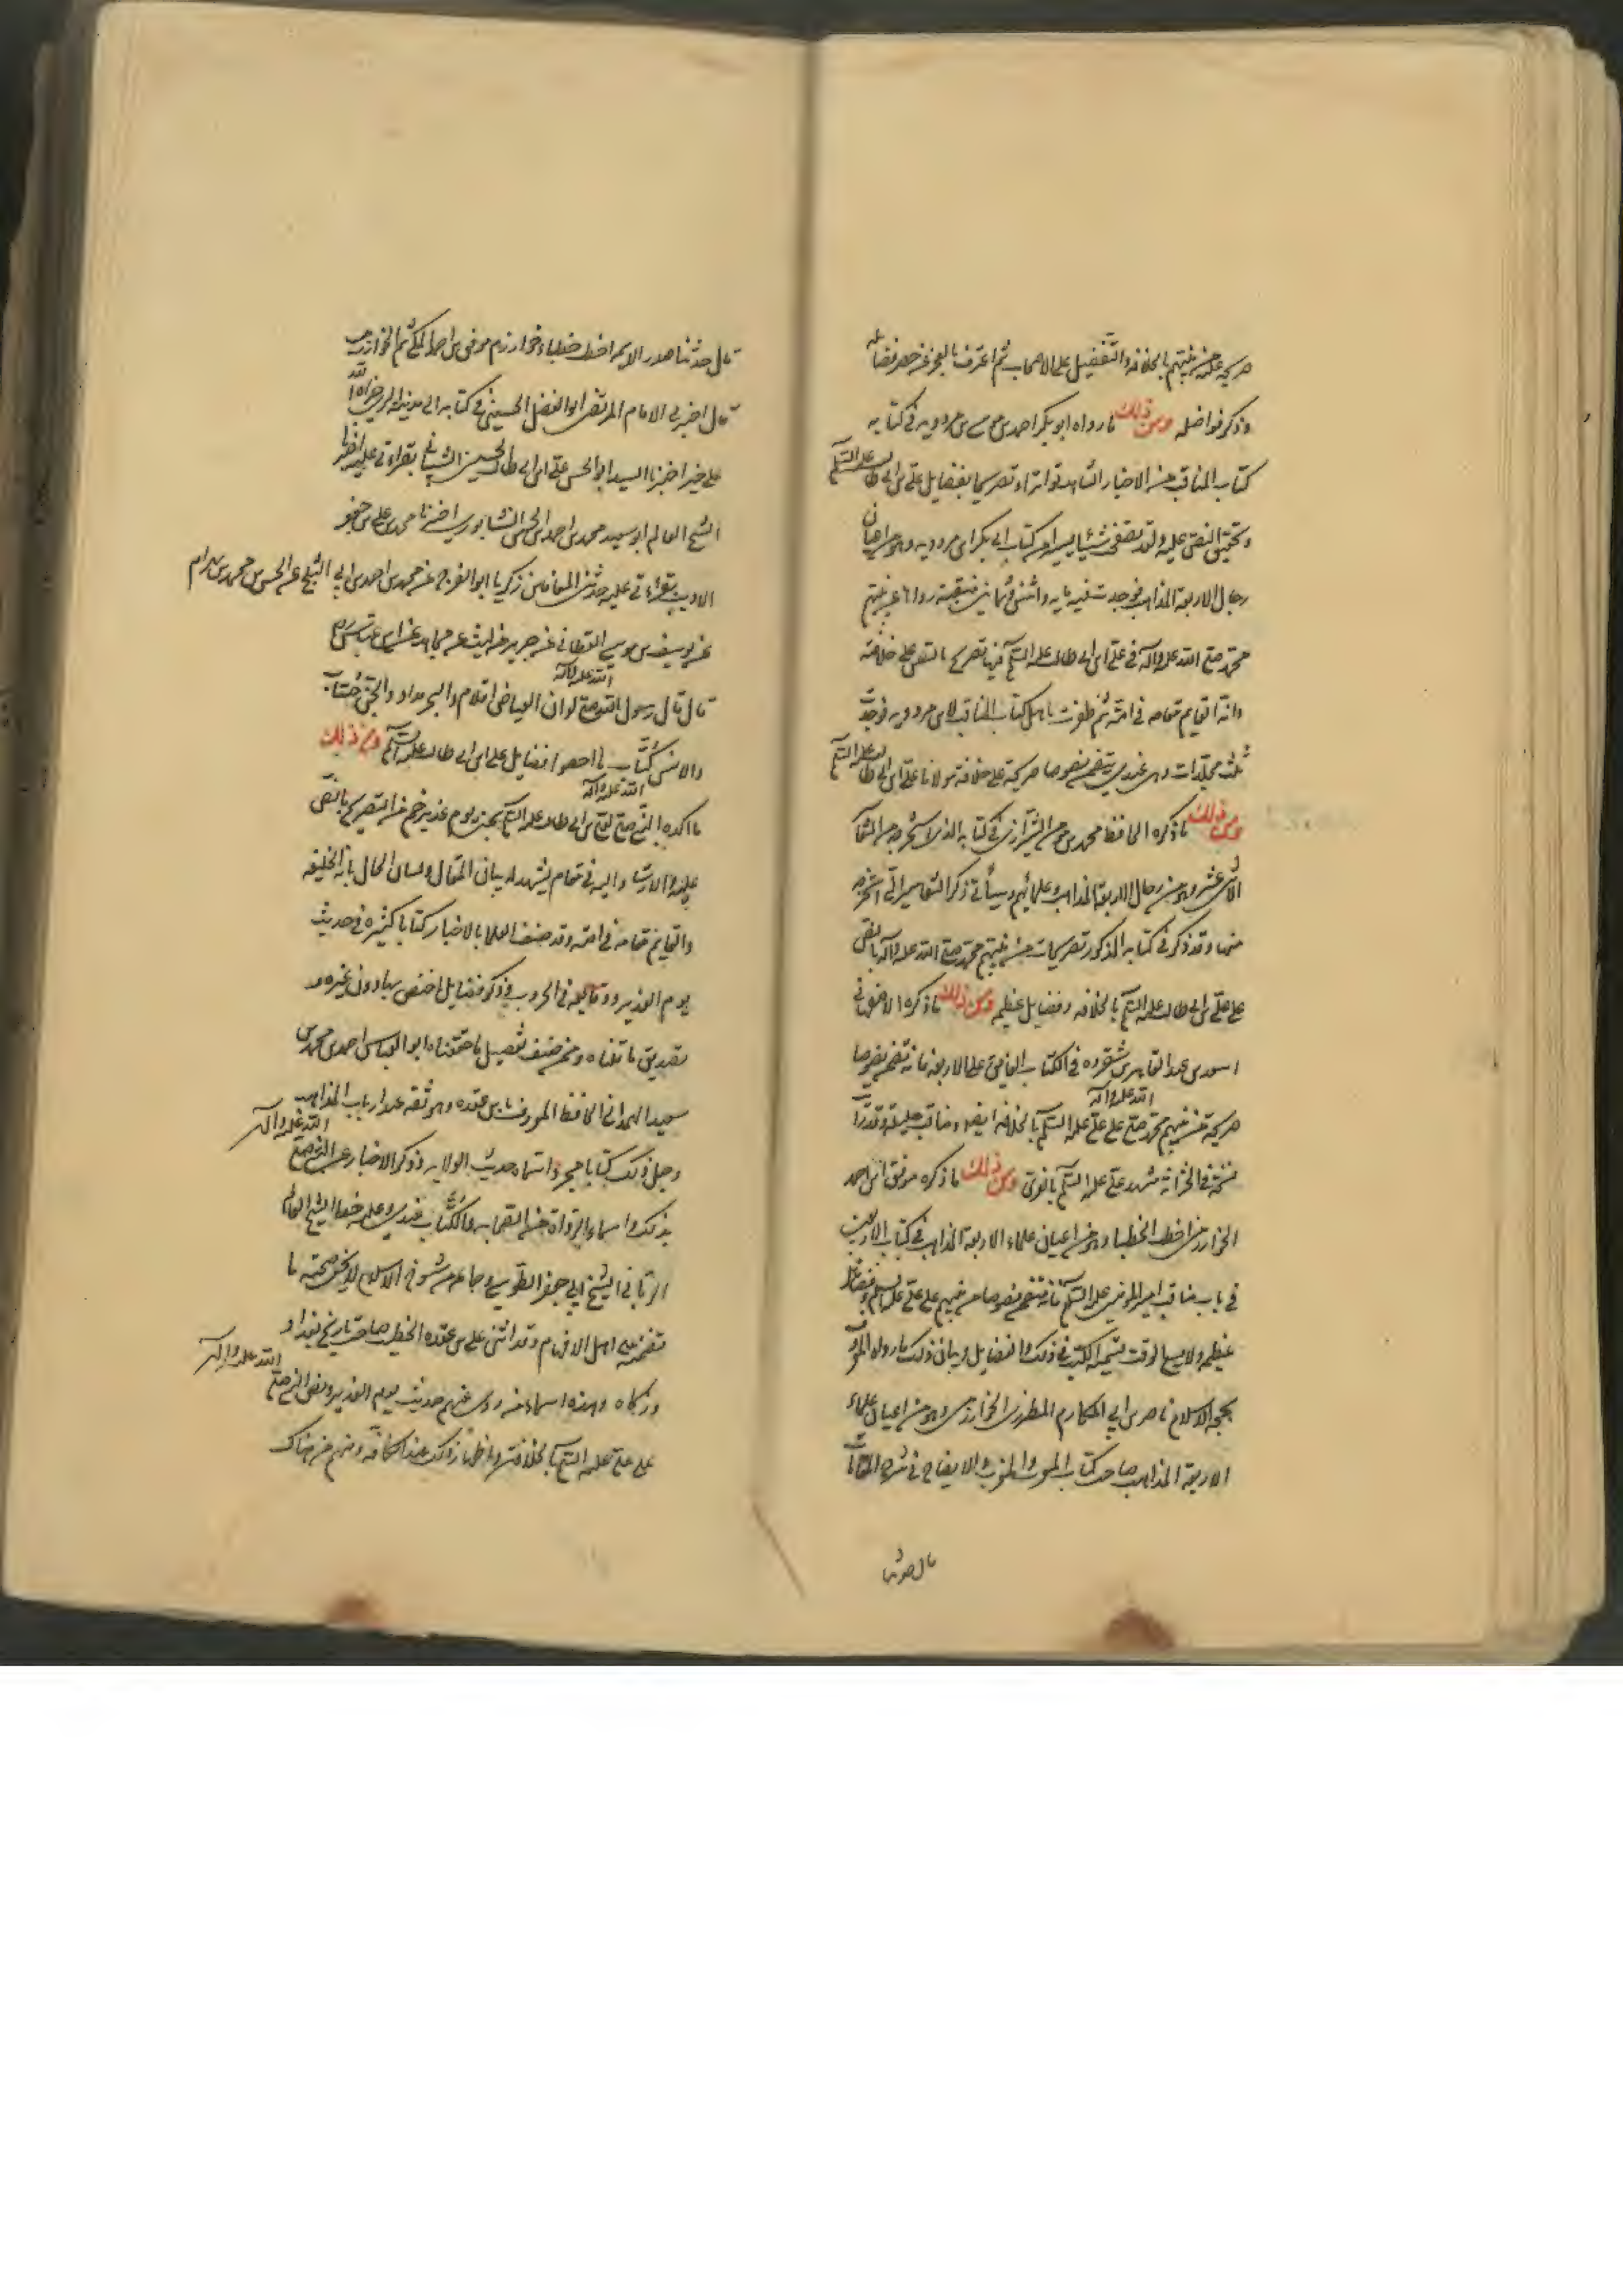 صريحة على من نبيهم بالخلافة والتفضيل على الاصحاب ثم اعترف بالعجز عن حصر فضائله
وذكر فواضله ومن ذلك ما رواه ابو بكر احمد بن موسى بن مردويه في كتابه
كتاب المناقب من الاخبار الشاهدة تواترا وتصريحا بفضايل علي بن ابي طالب عليه السلم
وتحقيق النص عليه ولقد تصفحت شيئا يسيرا من كتاب ابي بكر ابن مردويه وهو من اعيان
رجال الاربعة المذاهب فوجدت فيه مايه واثنتين وثمانين منقبة رواها عن نبيهم
محمد صلى الله عليه واله في علي ابن ابي طالب عليه السلم فيها تصريح بالنص على خلافته
وانه القايم مقامه في امته ثم ظفرت باصل كتاب المناقب لابن مردويه فوجدت
ثلث مجلدات وهي عندي يتضمن نصوصا صريحة على خلافة مولانا علي ابن ابي طالب عليه السلم
ومن ذلك ما ذكره الحافظ محمد بن مومن الشيرازي في كتابه الذي استخرجه من التفاسير
الاثني عشر وهو من رجال الاربعة المذاهب وعلمائهم وسيأتي ذكر التفاسير التي استخرجه
منها وقد ذكر في كتابه المذكور تصريحات من نبيهم محمد صلى الله عليه واله بالنص
على علي بن ابي طالب عليه السلم بالخلافة وفضايل عظيمة ومن ذلك ما ذكره الاصفهاني
اسعد بن عبد القاهر بن شقروه في الكتاب الفايق على الاربعة فانه تضمن نصوصا
صريحة من نبيهم محمد صلى الله عليه واله على علي عليه السلم بالخلافة ايضا ومناقب جليلة وقد رايت
نسخة في الخزانة بمشهد علي عليه السلم بالغري ومن ذلك ما ذكره موفق ابن احمد
الخوارزمي اخطب الخطباء وهو من اعيان علماء الاربعة المذاهب في كتاب الاربعين
في باب مناقب امير المومنين عليه السلم فانه تضمن نصوصا من نبيهم على علي عليه السلم وفضائل
عظيمة ولا يسع الوقت تسمية الكتب في ذلك والفضايل وبيان ذلك ما رواه المعروف
بحجة الاسلام ناصر بن ابي المكارم المطرزي الخوارزمي وهو من اعيان علماء
الاربعة المذاهب صاحب كتاب المعرب والمغرب والايضاح في شرح المقامات
قال حدثنا
قال حدثنا صدر الائمة اخطب خطباء خوارزم موفق بن احمد المكي ثم الخوارزمي
قال اخبرني الامام المرتضى ابو الفضل الحسيني في كتابه الي من مدينة الري جزاه الله
علي خيرا اخبرنا السيد ابو الحسن علي ابن ابي طالب الحسيني الشيباني بقراءتي عليه اخبرنا
الشيخ العالم ابو سعيد محمد بن احمد ابن الحسن النيشابوري اخبرنا محمد بن علي بن جعفر
الاديب بقراءتي عليه حدثني المعافا بن زكريا ابو الفرج عن محمد بن احمد بن ابي الثلج عن الحسن بن محمد بن بهرام
عن يوسف بن موسى القطاني عن جرير عن ليث عن مجاهد عن ابن عباس رض
قال قال رسول الله صلى الله عليه واله لو ان الغياض اقلام والبحر مداد والجن حساب
والانس كتاب ما احصوا فضايل علي ابن ابي طالب عليه السلم ومن ذلك
ما اكده النبي صلى الله عليه واله لعلي بن ابي طالب عليه السلم بحديث يوم غدير خم من التصريح بالنص
عليه والارشاد اليه في مقام يشهد له بيان المقال ولسان الحال بانه الخليفة
والقايم مقامه في امته وقد صنف العلما بالاخبار كتبا كثيرة في حديث
يوم الغدير ووقايعه في الحروب وذكر فضايل اختص بها دون غيره و
تصديق ما قلناه وممن صنف تفصيل ما حققناه ابو العباس احمد بن محمد بن
سعيد الهمداني الحافظ المعروف بابن عقدة وهو ثقة عند ارباب المذاهب
وجعل ذلك كتابا مجردا سماه حديث الولاية وذكر الاخبار عن النبي صلى الله عليه واله
بذلك واسماء الرواة من الصحابة والكتاب عندي وعليه خط الشيخ العالم
الرباني الشيخ ابي جعفر الطوسي وجماعة من شيوخ الاسلام لا يخفى صحته ما
تضمنه على اهل الافهام وقد اثنى على بن عقدة الخطيب صاحب تاريخ بغداد
وزكاه وهذه اسماء من روى عنهم حديث يوم الغدير ونص النبي صلى الله عليه واله
على علي عليه السلم بالخلافة واظهار ذلك عند الكافة ومنهم من هناك